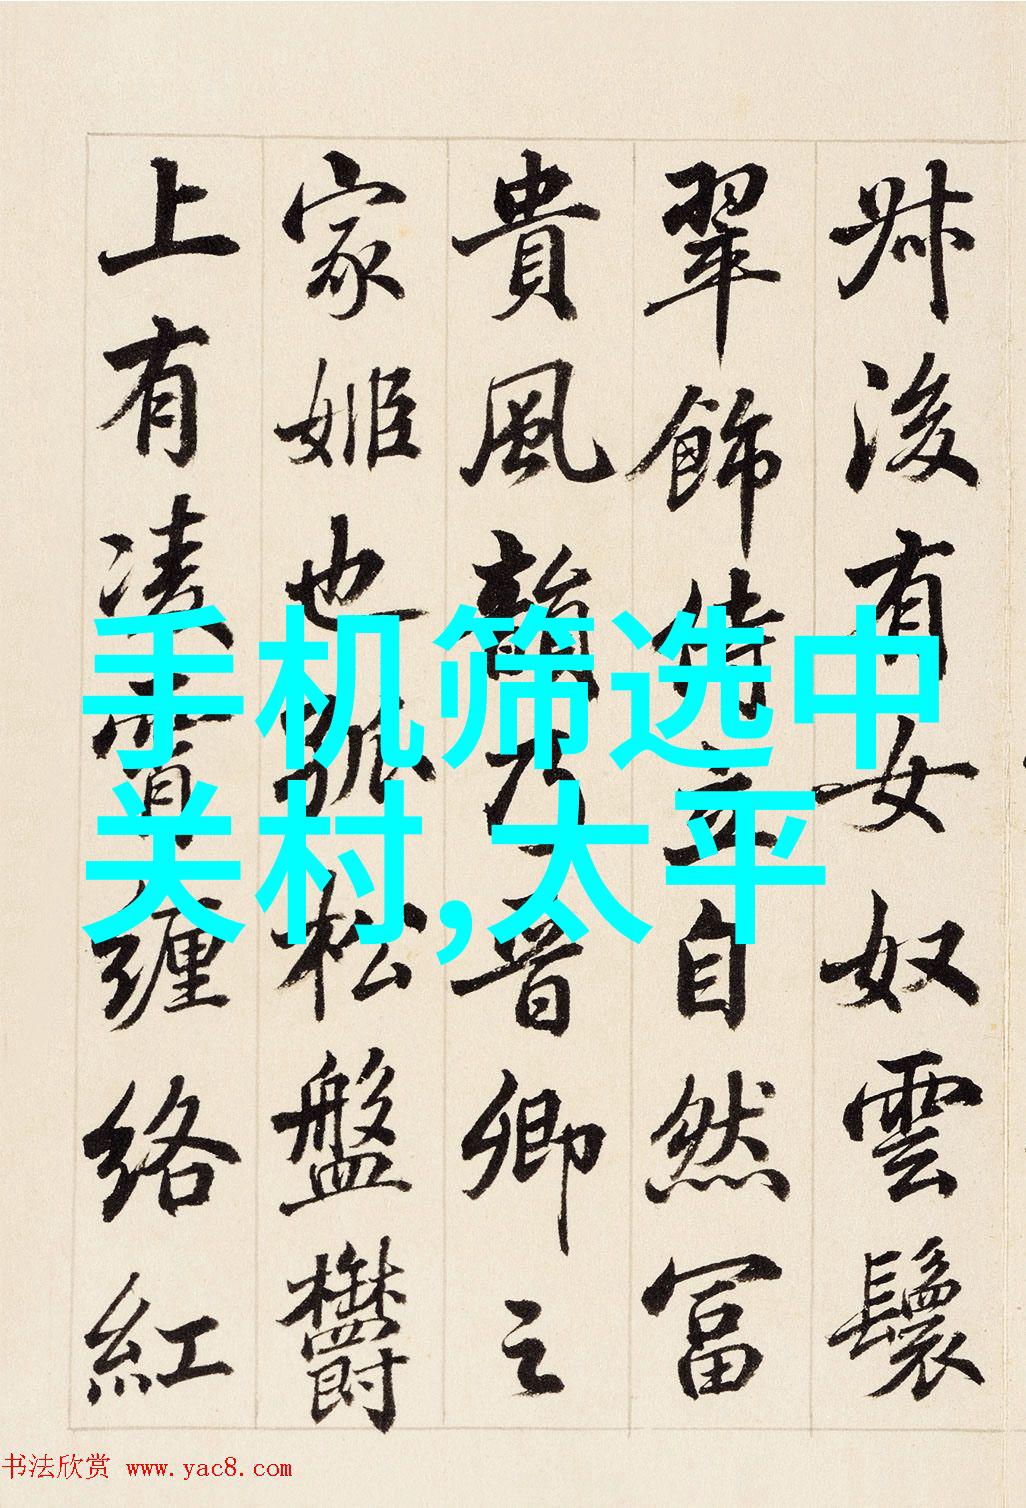 叔後有女奴雲鬟
翠飾侍立自然富
貴風韻乃晉卿之
家姬也孤松盤鬱
上有凌霄纏絡紅
手机筛选中
关村,太平
书法欣赏 www.yac8.com